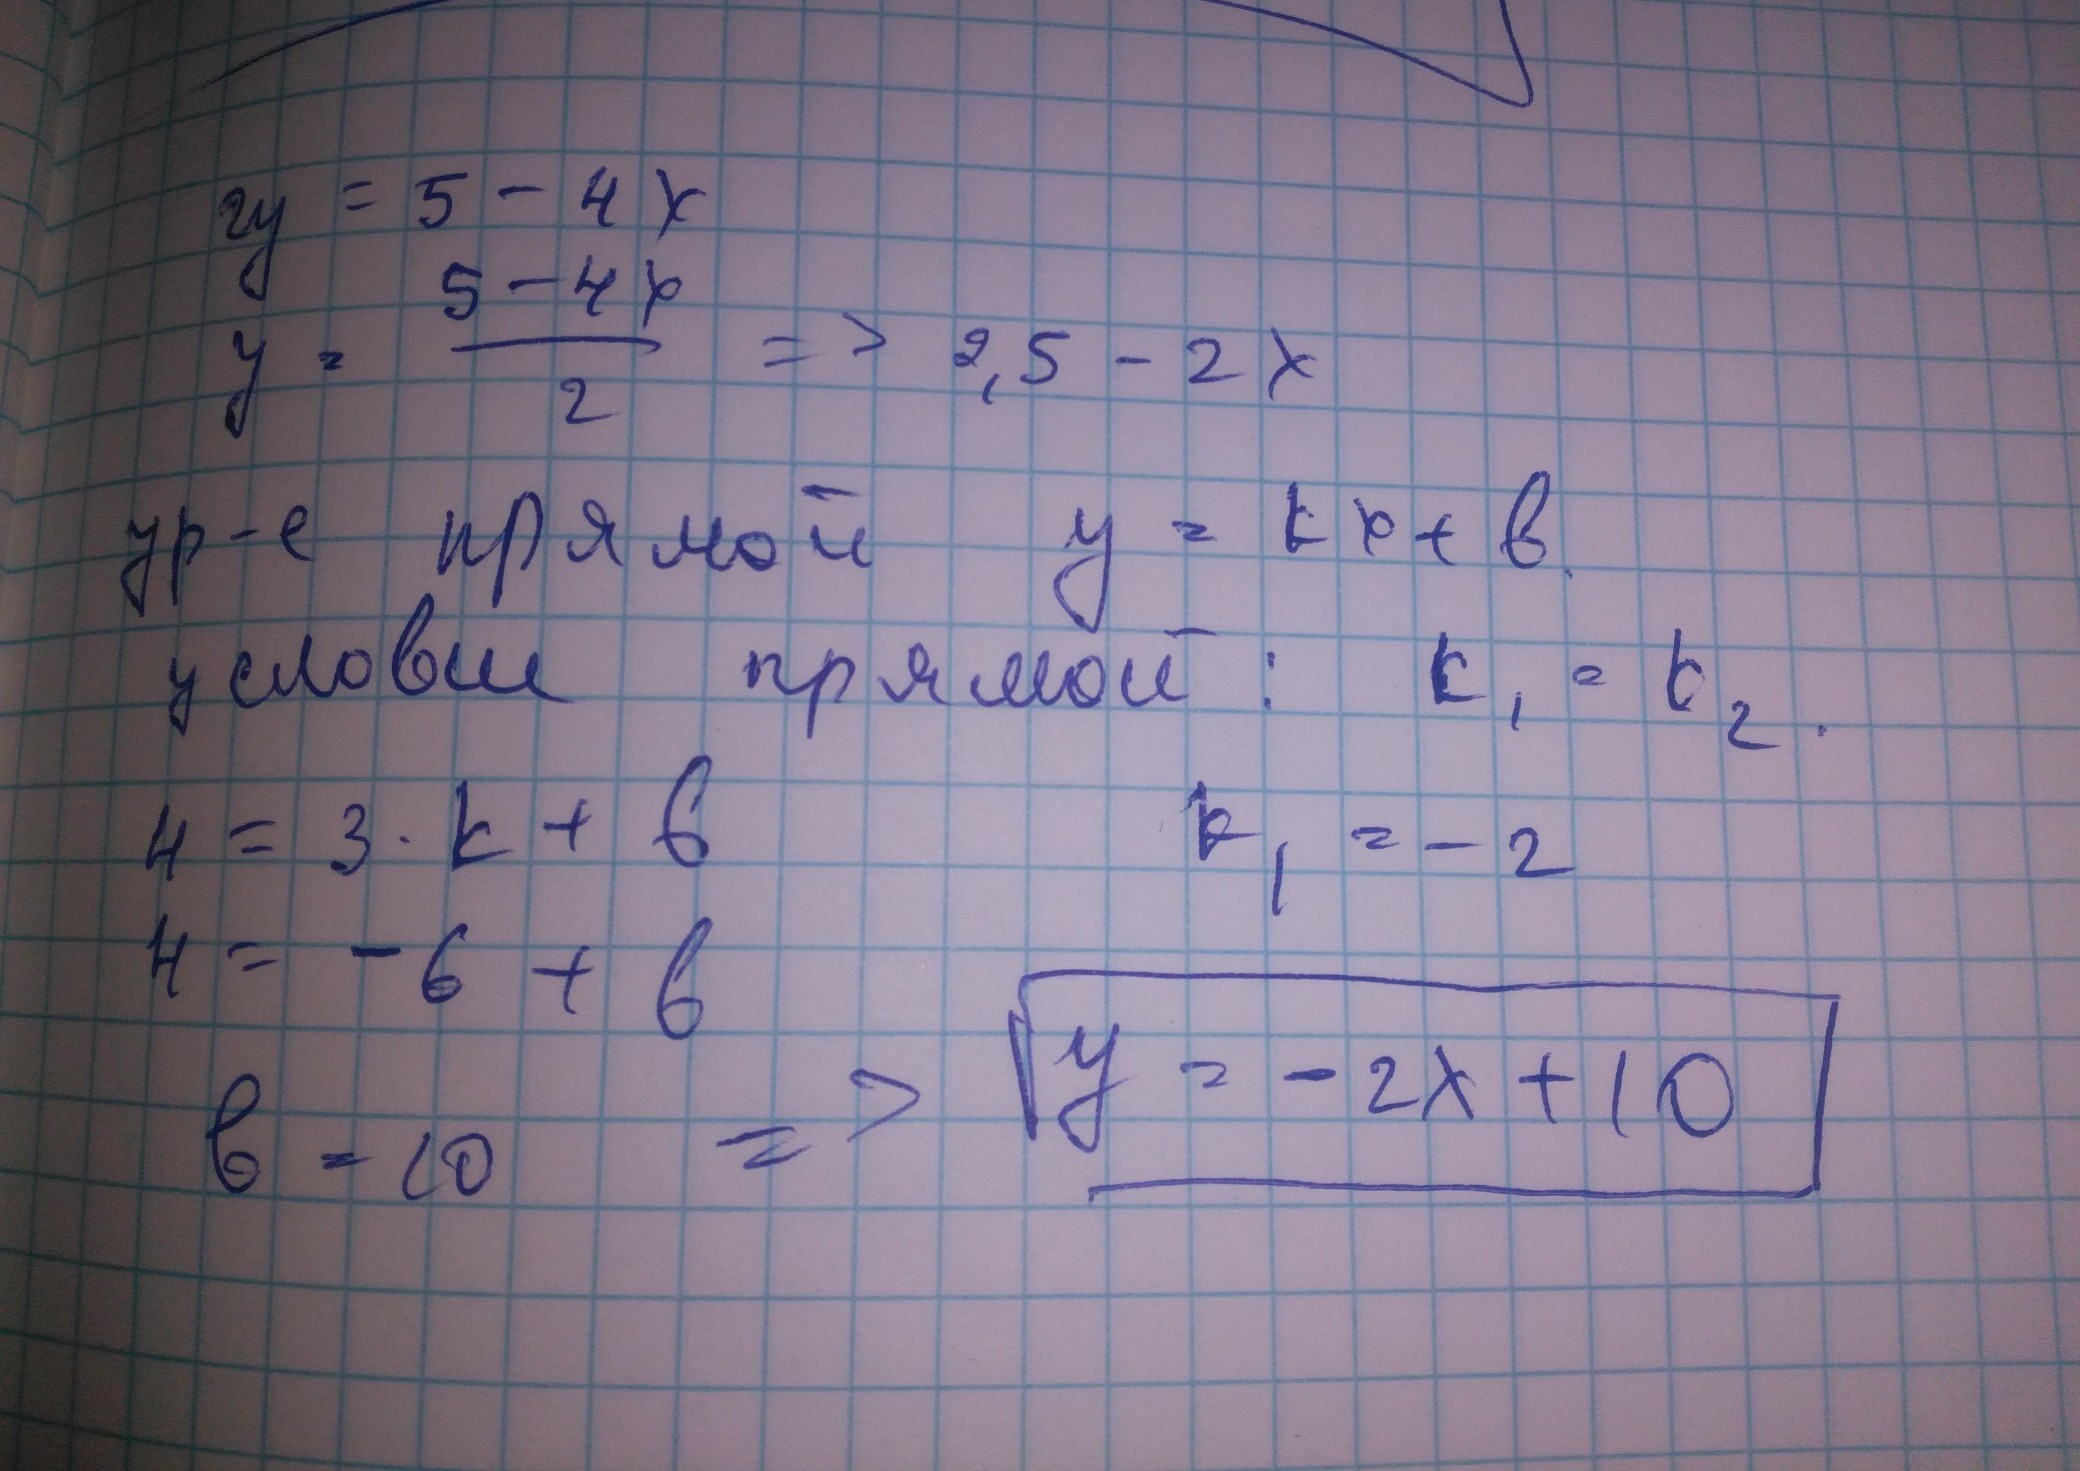 2y = 5 - 4x
y = 5 - 4x / 2 => 2,5 - 2x
ур-е прямой y = kx + b.
условие прямой: k₁ = k₂.
4 = 3 · k + b k₁ = - 2
4 = - 6 + b
b = 10 => y = - 2x + 10